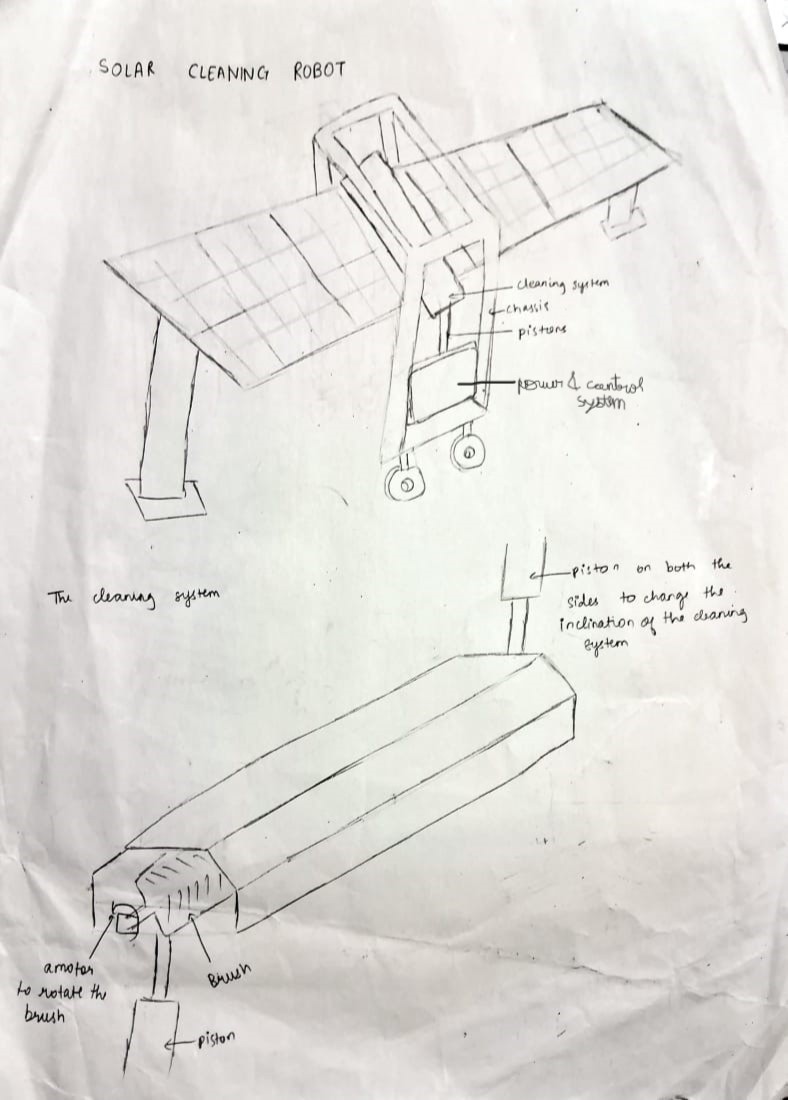 SOLAR CLEANING ROBOT
cleaning system
chassis
pistons
power & control
system
The cleaning system
piston on both the
sides to change the
inclination of the cleaning
system
a motor
to rotate the
brush
Brush
piston